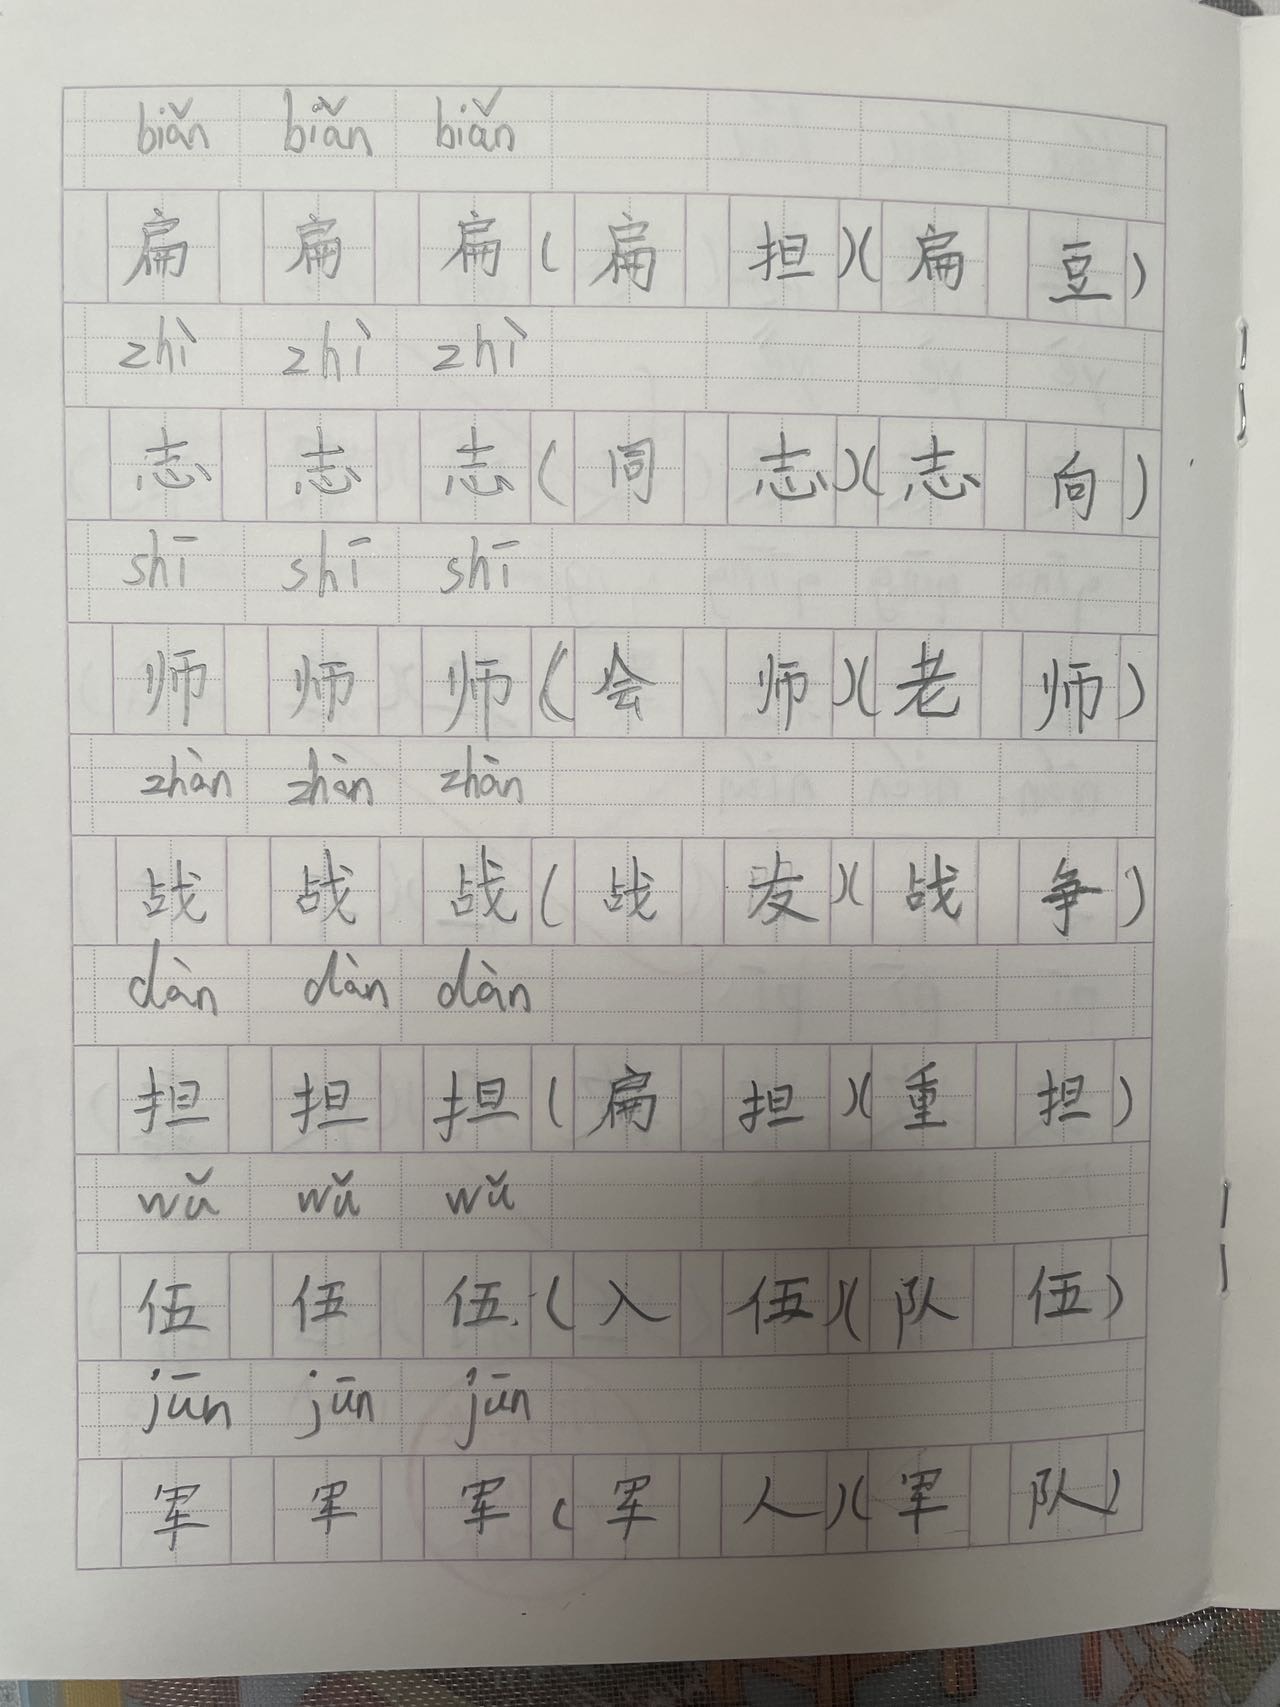 biǎn biǎn biǎn
扁 扁 扁 ( 扁 担 ) ( 扁 豆 )
zhì zhì zhì
志 志 志 ( 同 志 ) ( 志 向 )
shī shī shī
师 师 师 ( 会 师 ) ( 老 师 )
zhàn zhàn zhàn
战 战 战 ( 战 友 ) ( 战 争 )
dàn dàn dàn
担 担 担 ( 扁 担 ) ( 重 担 )
wǔ wǔ wǔ
伍 伍 伍 ( 入 伍 ) ( 队 伍 )
jūn jūn jūn
军 军 军 ( 军 人 ) ( 军 队 )